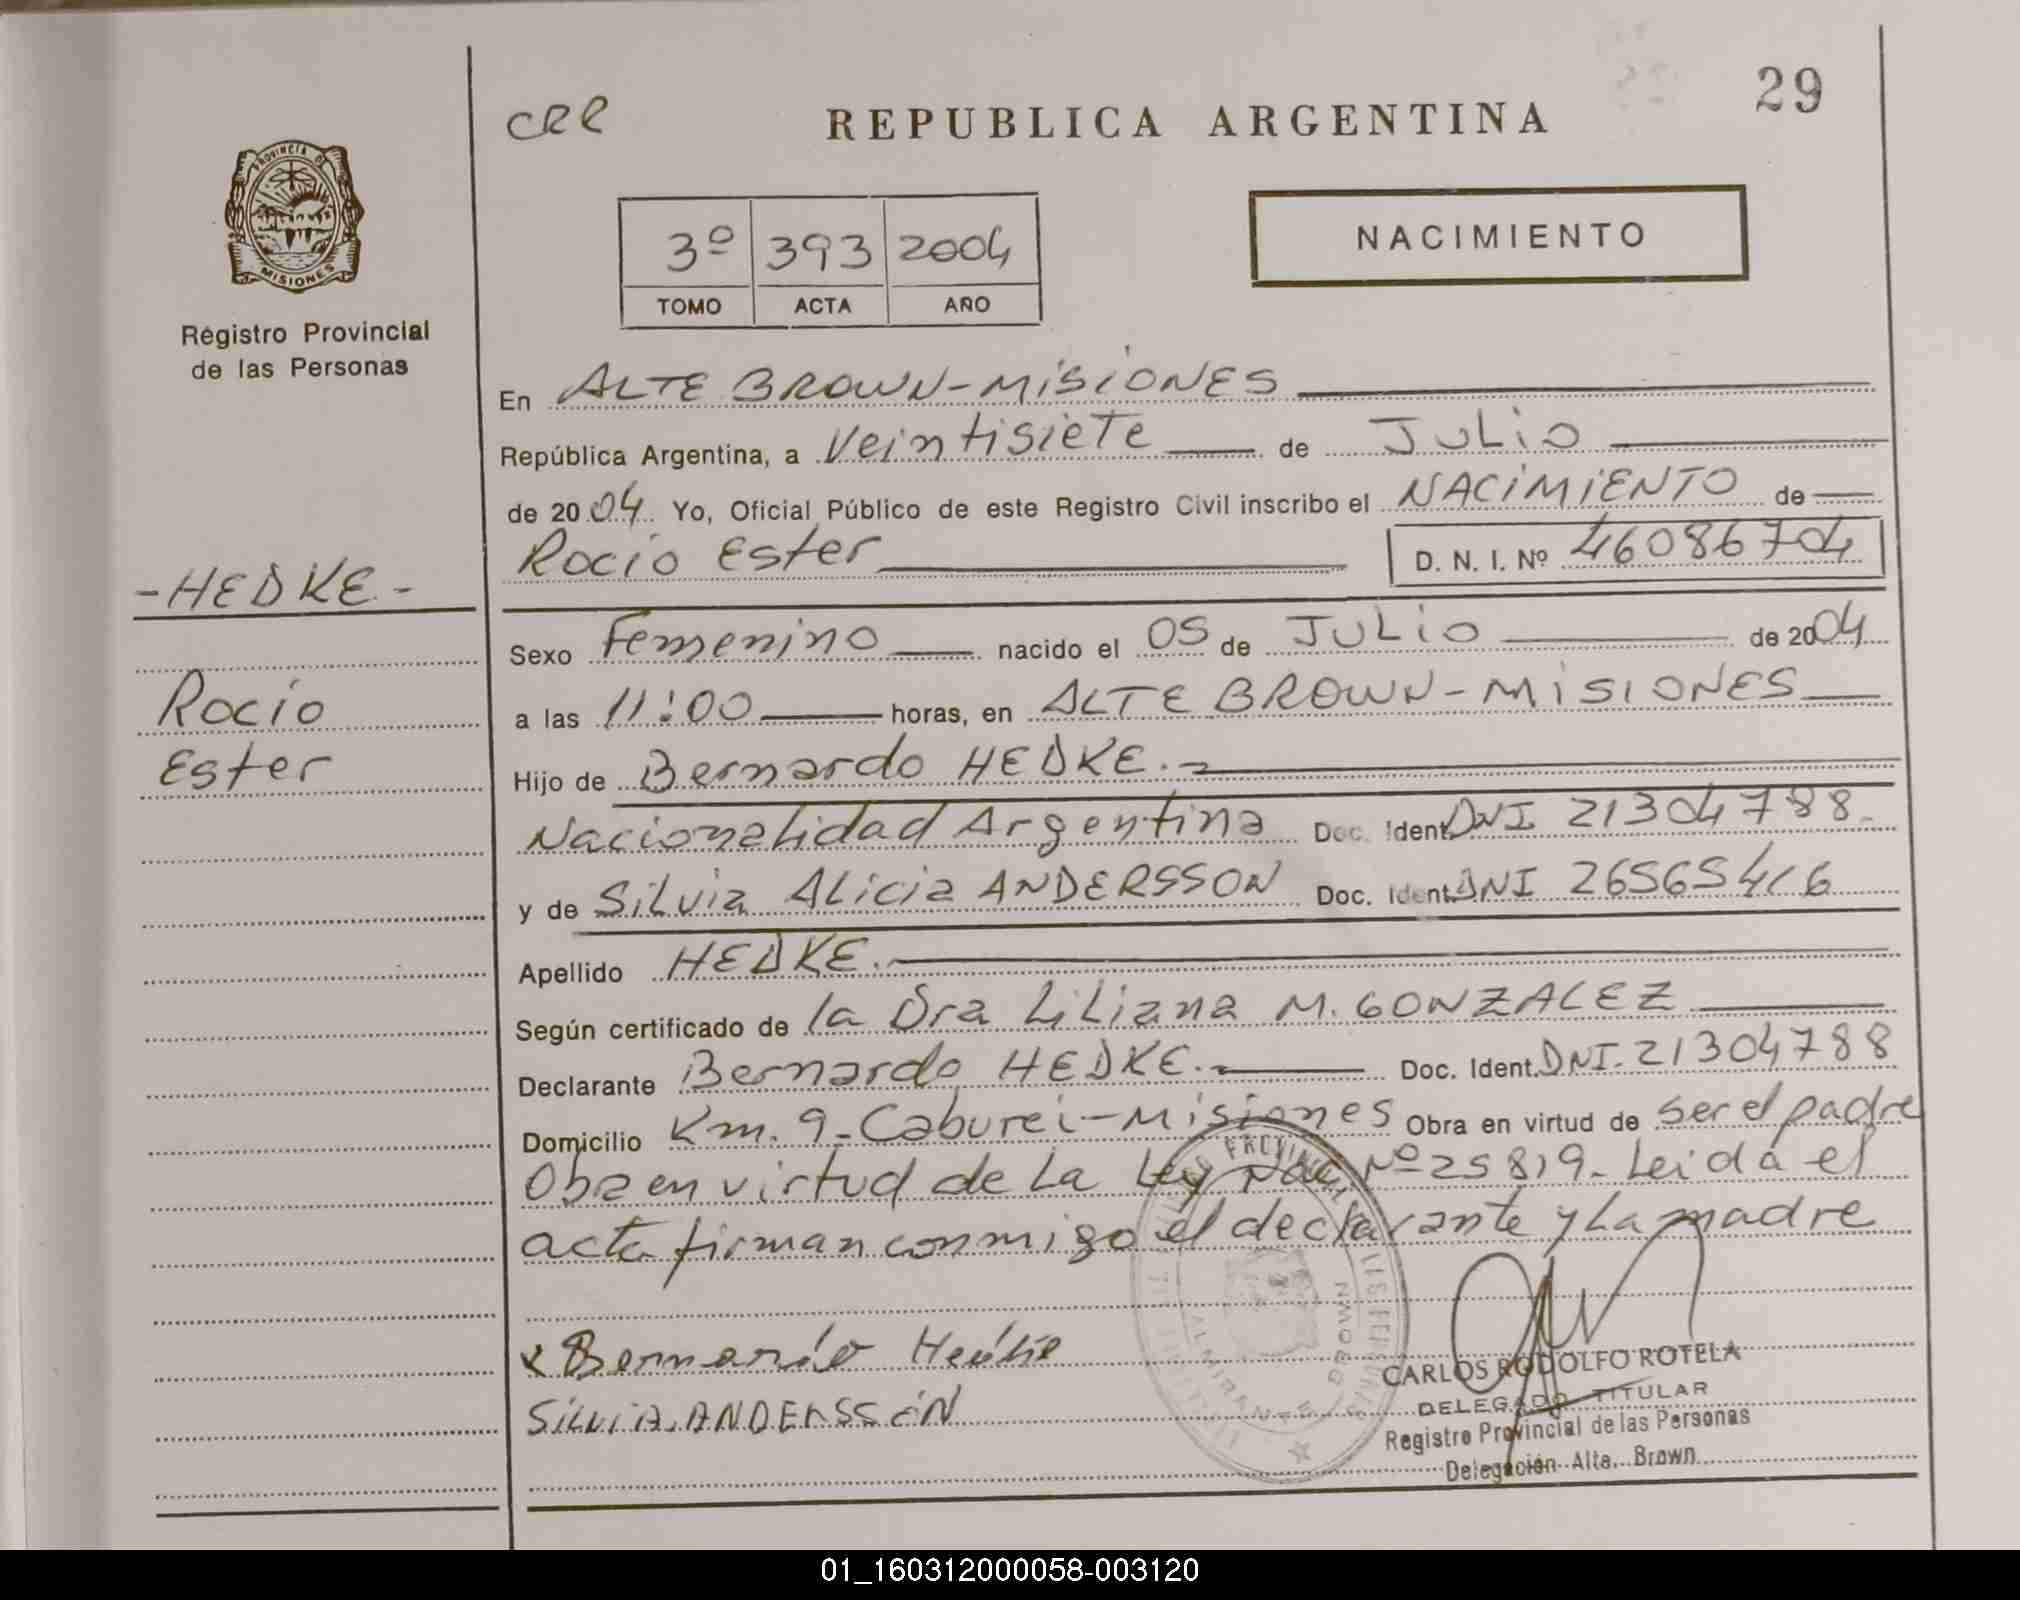 29
CRR
REPUBLICA ARGENTINA
PROVINCIA DE
MISIONES
3º 393 2004
TOMO ACTA AÑO
NACIMIENTO
Régistro Provincial
de las Personas
En ALTE BROWN-MISIONES
República Argentina, a Veintisiete de JULIO
de 2004 Yo, Oficial Público de este Registro Civil inscribo el NACIMIENTO de
Rocío Ester D. N. I. Nº 46086704
-HEDKE-
Rocío
Ester
Sexo Femenino nacido el 05 de JULIO de 2004
a las 11:00 horas, en ALTE BROWN-MISIONES
Hijo de Bernardo HEDKE.
Nacionalidad Argentina Doc. Ident. DNI 21304788.
y de Silvia ALicia ANDERSSON Doc. Ident. DNI 26565416
Apellido HEDKE.
Según certificado de la Dra Liliana M. GONZALEZ
Declarante Bernardo HEDKE. Doc. Ident. DNI. 21304788
Domicilio Km. 9-Caburei-Misiones Obra en virtud de ser el padre
Obra en virtud de La Ley Nac. Nº 25819-Leida el
acta firman conmigo el declarante y La madre
Bernardo Hedke
SILVIA ANDERSSON
ALMIRANTE BROWN
CARLOS RODOLFO ROTELA
DELEGADO TITULAR
Registro Provincial de las Personas
Delegación Alte. Brown
01_160312000058-003120